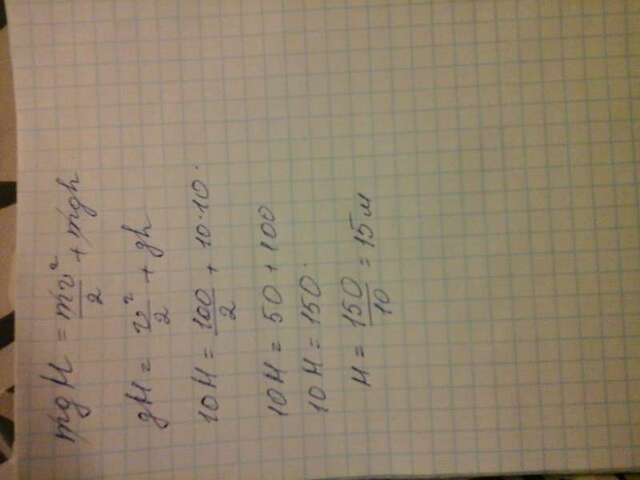 mgH = mv²/2 + mgh
gH = v²/2 + gh
10H = 100/2 + 10·10.
10H = 50 + 100
10H = 150.
H = 150/10 = 15м